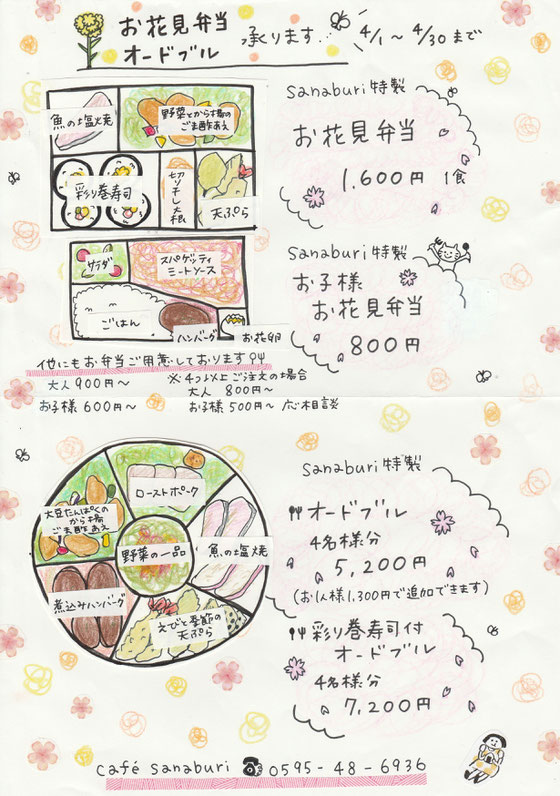 お花見弁当
オードブル
承ります… 4/1～4/30まで
魚の塩焼
野菜とから揚の
ごま酢あえ
彩り巻寿司
切り干し大根
天ぷら
sanaburi特製
お花見弁当
1,600円 1食
サラダ
スパゲッティ
ミートソース
ごはん
ハンバーグ
お花卵
sanaburi特製
お子様
お花見弁当
800円
他にもお弁当ご用意しております
大人900円～
お子様600円～
※4つ以上ご注文の場合
大人 800円～
お子様500円～ 応相談
ローストポーク
大豆たんぱくの
から揚
ごま酢あえ
野菜の一品
魚の塩焼
煮込みハンバーグ
えびと季節の
天ぷら
sanaburi特製
オードブル
4名様分
5,200円
(お1人様1,300円で追加できます)
彩り巻寿司付
オードブル
4名様分
7,200円
café sanaburi ☎ 0595-48-6936